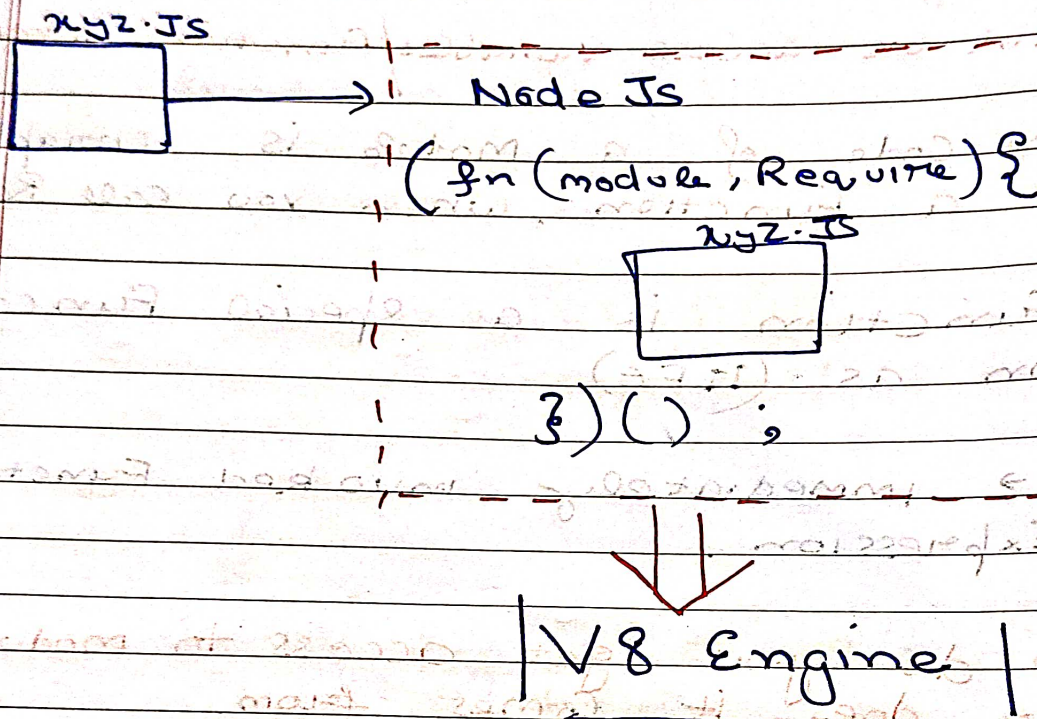 xyz.JS
Node JS
(fn (module, Require) {
xyz.JS
}) () ;
V8 Engine